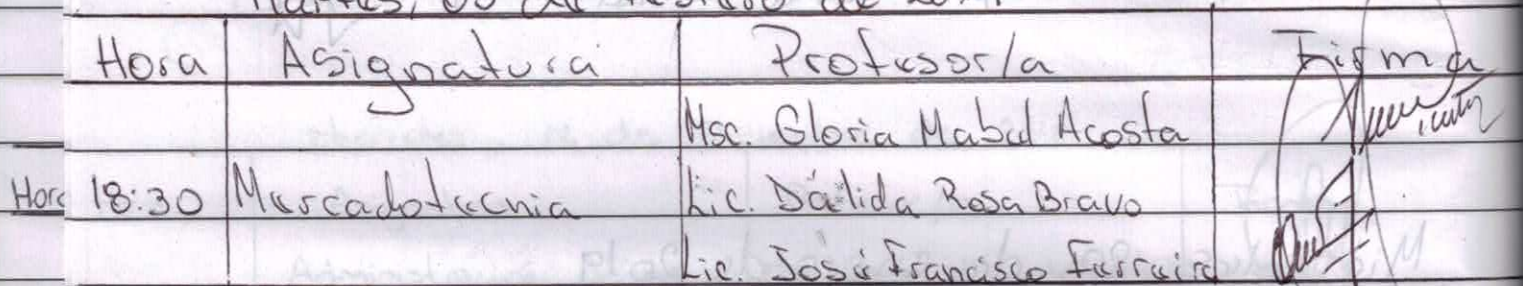 Hora Asignatura Profesor/a Firma
Msc. Gloria Mabel Acosta
Hora 18:30 Mercadotecnia Lic. Dálida Rosa Bravo
Lic. José Francisco Ferreira